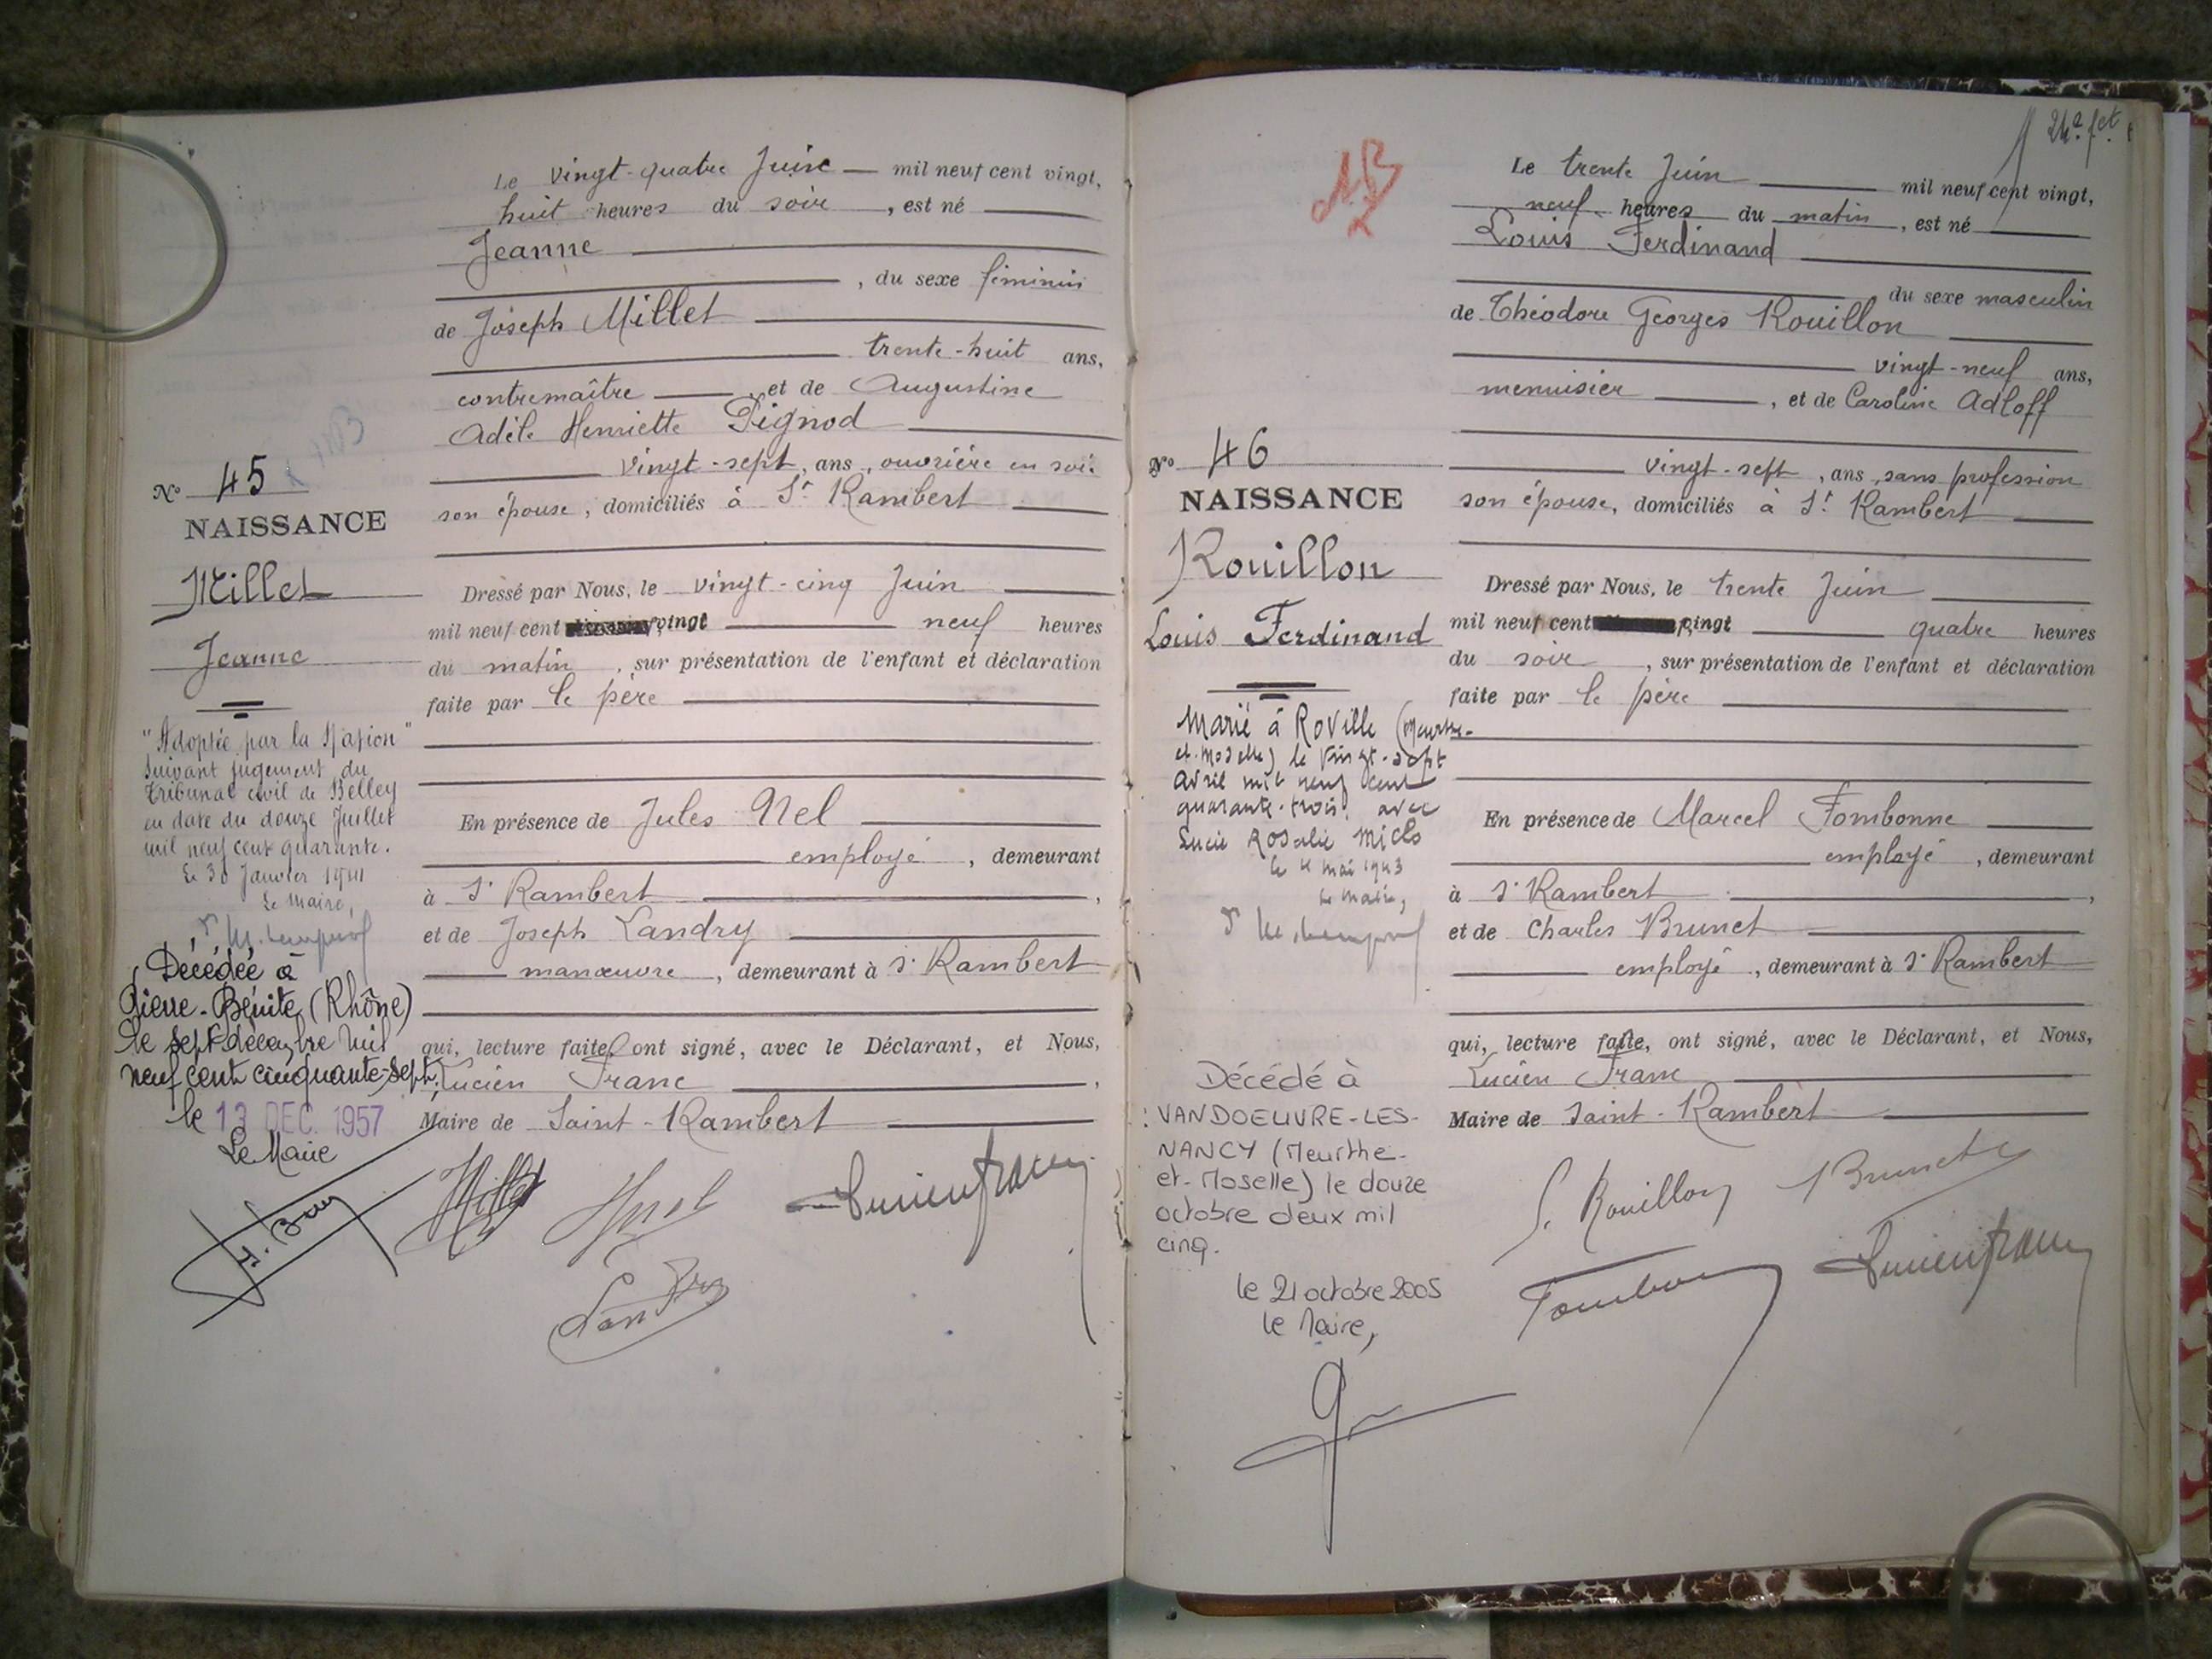 Le vingt-quatre Juin mil neuf cent vingt,
huit heures du soir, est né
Jeanne
, du sexe féminin
de Joseph Millet
trente-huit ans,
contremaître et de Augustine
Adèle Henriette Pignod
vingt-sept, ans, ouvrière en soie
son épouse, domiciliés à St Rambert
N° 45
NAISSANCE
Millet
Jeanne
Dressé par Nous, le vingt-cinq Juin
mil neuf cent vingt neuf heures
du matin, sur présentation de l'enfant et déclaration
faite par le père
"Adoptée par la Nation"
suivant jugement du
Tribunal civil de Belley
en date du douze Juillet
mil neuf cent quarante.
Le 30 Janvier 1941
Le Maire,
En présence de Jules Nel
employé, demeurant
à St Rambert,
et de Joseph Landry
manœuvre, demeurant à St Rambert
Décédée à
Pierre-Bénite (Rhône)
le sept décembre mil
neuf cent cinquante-sept,
le 13 DEC. 1957
Le Maire
qui, lecture faite, ont signé, avec le Déclarant, et Nous,
Lucien Franc,
Maire de Saint-Rambert
Millet
Landry
Lucien franc
24e fet
Le trente Juin mil neuf cent vingt,
neuf heures du matin, est né
Louis Ferdinand
du sexe masculin
de Théodore Georges Rouillon
vingt-neuf ans,
menuisier, et de Caroline Adloff
vingt-sept, ans, sans profession
son épouse, domiciliés à St Rambert
N° 46
NAISSANCE
Rouillon
Louis Ferdinand
Dressé par Nous, le trente Juin
mil neuf cent vingt quatre heures
du soir, sur présentation de l'enfant et déclaration
faite par le père
Marié à Roville (Meurthe-
et-Moselle) le vingt-sept
avril mil neuf cent
quarante-trois avec
Lucie Rosalie Miclo
le 4 mai 1943
Le Maire,
En présence de Marcel Fombonne
employé, demeurant
à St Rambert,
et de Charles Brunet
employé, demeurant à St Rambert
qui, lecture faite, ont signé, avec le Déclarant, et Nous,
Lucien Franc
Maire de Saint-Rambert
Décédé à
VANDOEUVRE-LES-
NANCY (Meurthe-
et-Moselle) le douze
octobre deux mil
cinq.
le 21 octobre 2005
le Maire,
Rouillon Brunet
Lucien franc